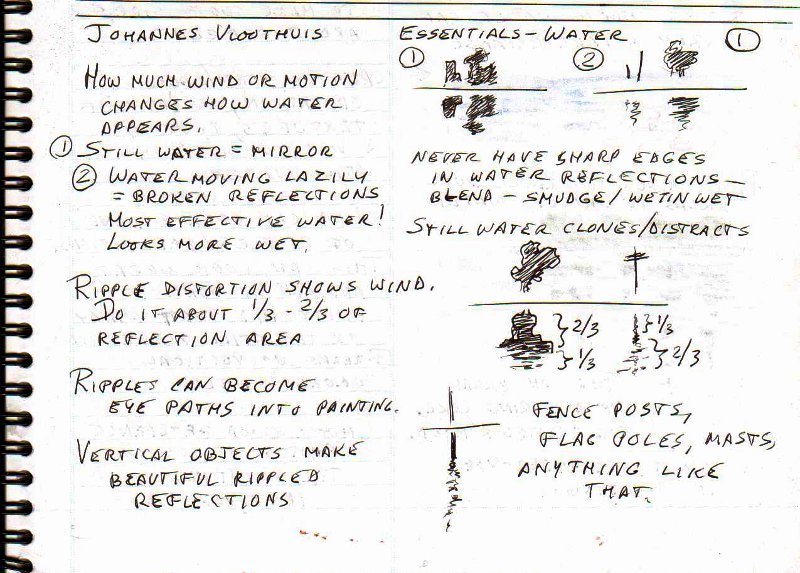 JOHANNES VLOOTHUIS
HOW MUCH WIND OR MOTION
CHANGES HOW WATER
APPEARS.
① STILL WATER = MIRROR
② WATER MOVING LAZILY
= BROKEN REFLECTIONS
MOST EFFECTIVE WATER!
LOOKS MORE WET.
RIPPLE DISTORTION SHOWS WIND.
DO IT ABOUT 1/3 - 2/3 OF
REFLECTION AREA
RIPPLES CAN BECOME
EYE PATHS INTO PAINTING.
VERTICAL OBJECTS MAKE
BEAUTIFUL RIPPLED
REFLECTIONS
ESSENTIALS - WATER ①
① ②
NEVER HAVE SHARP EDGES
IN WATER REFLECTIONS —
BLEND - SMUDGE / WET IN WET
STILL WATER CLONES/DISTRACTS
} 2/3 } 1/3
} 1/3 } 2/3
FENCE POSTS,
FLAG POLES, MASTS,
ANYTHING LIKE
THAT.